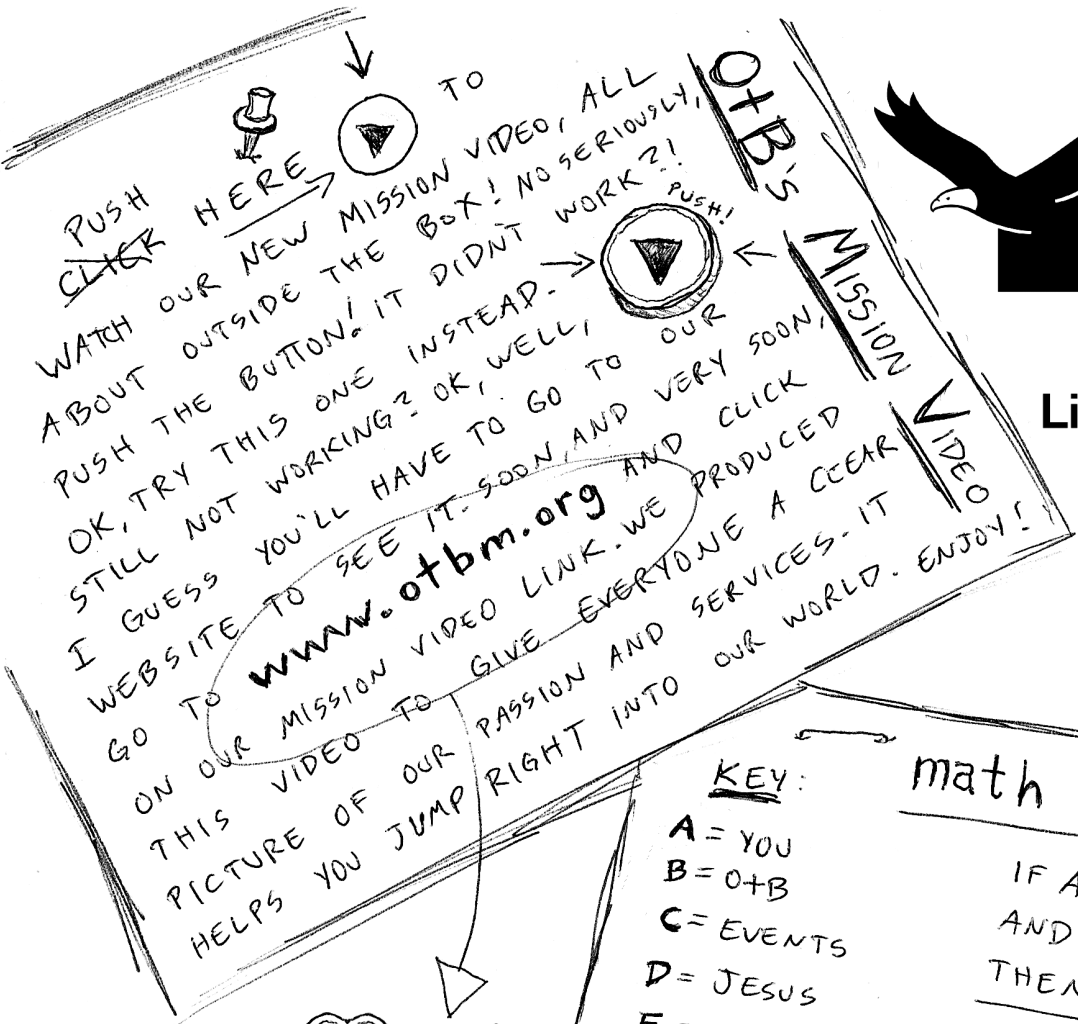 PUSH
CLICK HERE TO
WATCH OUR NEW MISSION VIDEO, ALL
ABOUT OUTSIDE THE BOX! NO SERIOUSLY,
PUSH THE BUTTON! IT DIDNT WORK?!
OK, TRY THIS ONE INSTEAD.
PUSH!
STILL NOT WORKING? OK, WELL,
I GUESS YOU'LL HAVE TO GO TO OUR
WEBSITE TO SEE IT. SOON, AND VERY SOON,
GO TO www.otbm.org AND CLICK
ON OUR MISSION VIDEO LINK. WE PRODUCED
THIS VIDEO TO GIVE EVERYONE A CLEAR
PICTURE OF OUR PASSION AND SERVICES. IT
HELPS YOU JUMP RIGHT INTO OUR WORLD. ENJOY!
OtB's MISSION VIDEO
Li
KEY:
A = YOU
B = OtB
C = EVENTS
D = JESUS
math
IF A
AND
THEN